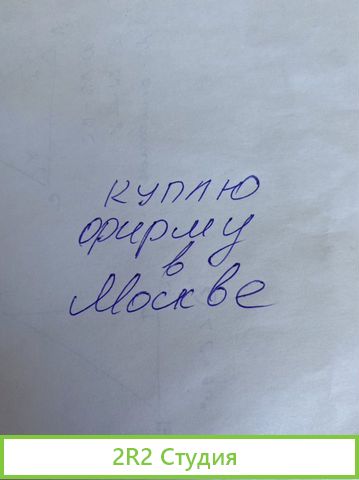 куплю
фирму
в
Москве
2R2 Студия